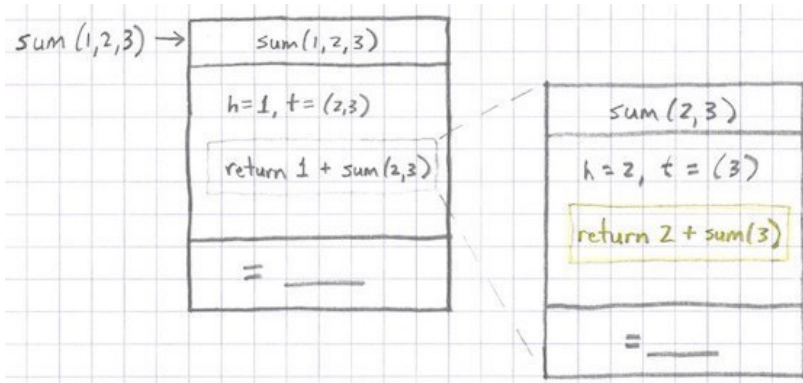 sum (1,2,3) →
sum(1,2,3)
h=1, t=(2,3)
return 1 + sum(2,3)
= ____
sum (2,3)
h = 2, t = (3)
return 2 + sum(3)
= ____